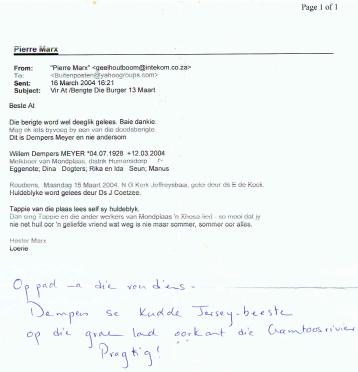 Page 1 of 1
Pierre Marx
From: "Pierre Marx" <geelhoutboom@intekom.co.za>
To: <Buitenposten@yahoogroups.com>
Sent: 16 March 2004 16:21
Subject: Vir At /Bengte Die Burger 13 Maart
Beste At
Die berigte word wel deeglik gelees. Baie dankie.
Mag ek iets byvoeg by een van die doodsberigte
Dit is Dempers Meyer en nie andersom
Willem Dempers MEYER *04.07.1928 +12.03.2004
Melkboer van Mondplaas, distrik Humansdorp
Eggenote; Dina Dogters; Rika en Ida Seun; Manus
Roudiens, Maandag 15 Maart 2004, N G Kerk Jeffreysbaai, gelei deur ds E de Kock.
Huldeblyke word gelees deur Ds J Coetzee.
Tappie van die plaas lees self sy huldeblyk.
Dan sing Tappie en die ander werkers van Mondplaas 'n Xhosa-lied - so mooi dat jy
nie net huil oor 'n geliefde vriend wat weg is nie maar sommer, sommer oor alles.
Hester Marx
Loerie
Op pad na die roudiens -
Dempers se kudde Jersey-beeste
op die groen land oorkant die Gamtoosrivier
Pragtig!